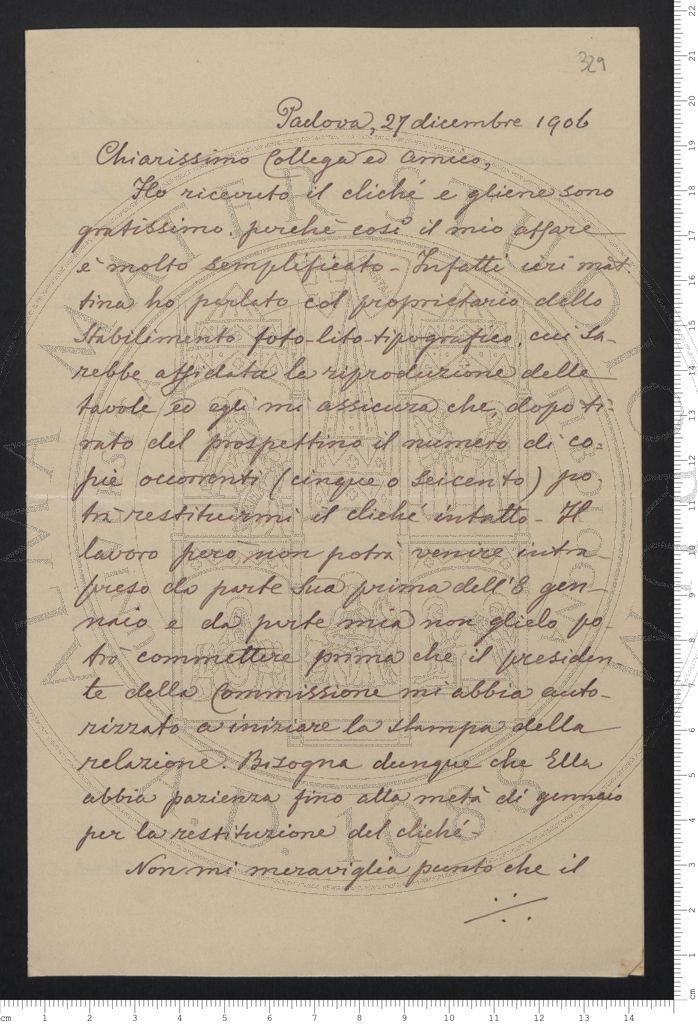 329
Padova, 27 dicembre 1906
Chiarissimo Collega ed Amico,
Ho ricevuto il cliché e gliene sono
gratissimo. perchè così il mio affare
è molto semplificato - Infatti ieri mat-
tina ho parlato col proprietario dello
Stabilimento foto-lito-tipografico, cui sa-
rebbe affidata la riproduzione delle
tavole ed egli mi assicura che, dopo ti-
rato del prospettino il numero di co-
pie occorrenti (cinque o seicento) po-
trà restituirmi il cliché intatto - Il
lavoro però non potrà venire intra-
preso da parte sua prima dell'8 gen-
naio e da parte mia non glielo po-
trò commettere prima che il presiden-
te della Commissione mi abbia auto-
rizzato a iniziare la stampa della
relazione. Bisogna dunque che Ella
abbia pazienza fino alla metà di gennaio
per la restituzione del cliché -
Non mi meraviglia punto che il
ALMA MATER STUDIORUM
A.D. 1088